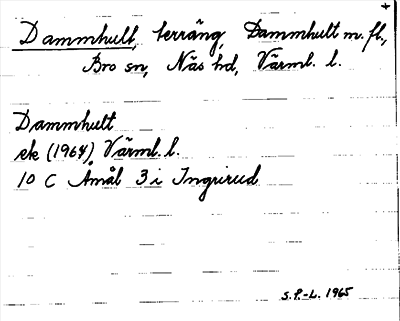 Dammhult, terräng, Dammhult m. fl.,
Bro sn, Näs hd, Värml. l.
Dammhult
ek (1964), Värml. l.
10 C Åmål 3 i Ingrirud
S.P.-L. 1965